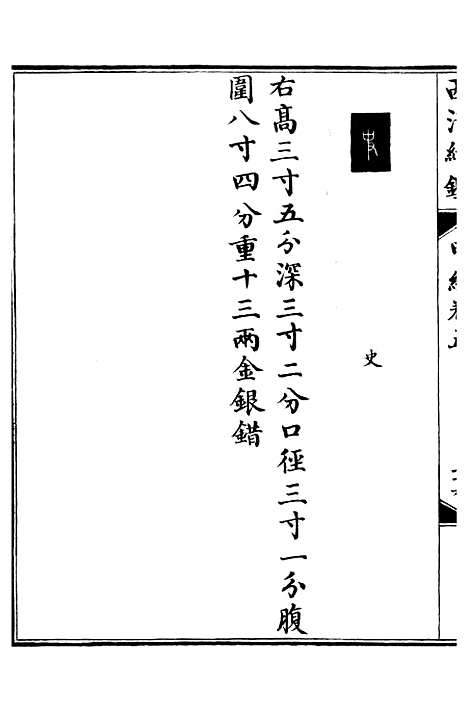 史
右髙三寸五分深三寸二分口徑三寸一分腹
圍八寸四分重十三兩金銀錯